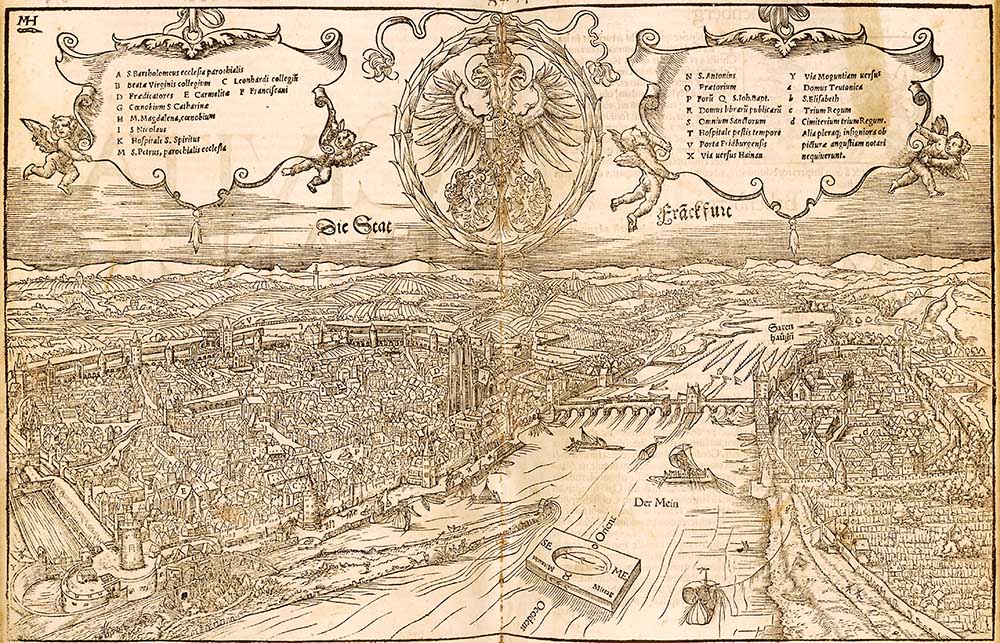 MH
A S. Bartholomeus ecclesia parochialis
B Beatæ Virginis collegium C Leonhardi collegiū
D Prædicatores E Carmelitæ F Franciscani
G Cœnobium S Catharinæ
H M. Magdalenæ, cœnobium
I S Nicolaus
K Hospitale S. Spiritus
M S. Petrus, parochialis ecclesia
N S. Antonius
O Prætorium
P Forū Q S. Ioh. Bapt.
R Domus librarū publicarū
S Omnium Sanctorum
T Hospitale pestis tempore
V Porta Fridburgensis
X Via uersus Hainan
Y Via Moguntiam uersus
a Domus Teutonica
b S. Elisabeth
c Trium Regum
d Cimiterium trium Regum.
Alia pleraq; insigniora ob
picturæ angustiam notari
nequiuerunt.
Die Stat
Franckfurt
Saxen
hausen
Der Mein
Orient
SE
ME
Occident